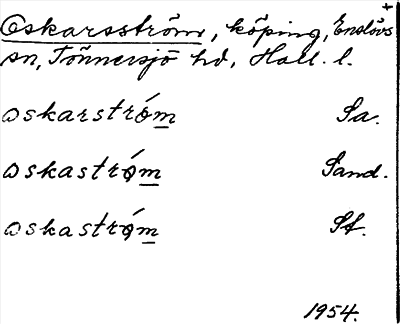 Oskarsström, köping, Enslövs
sn, Tönnersjö hd, Hall. l.
oskarström Sa.
oskaström Sand.
oskaström St.
1954.